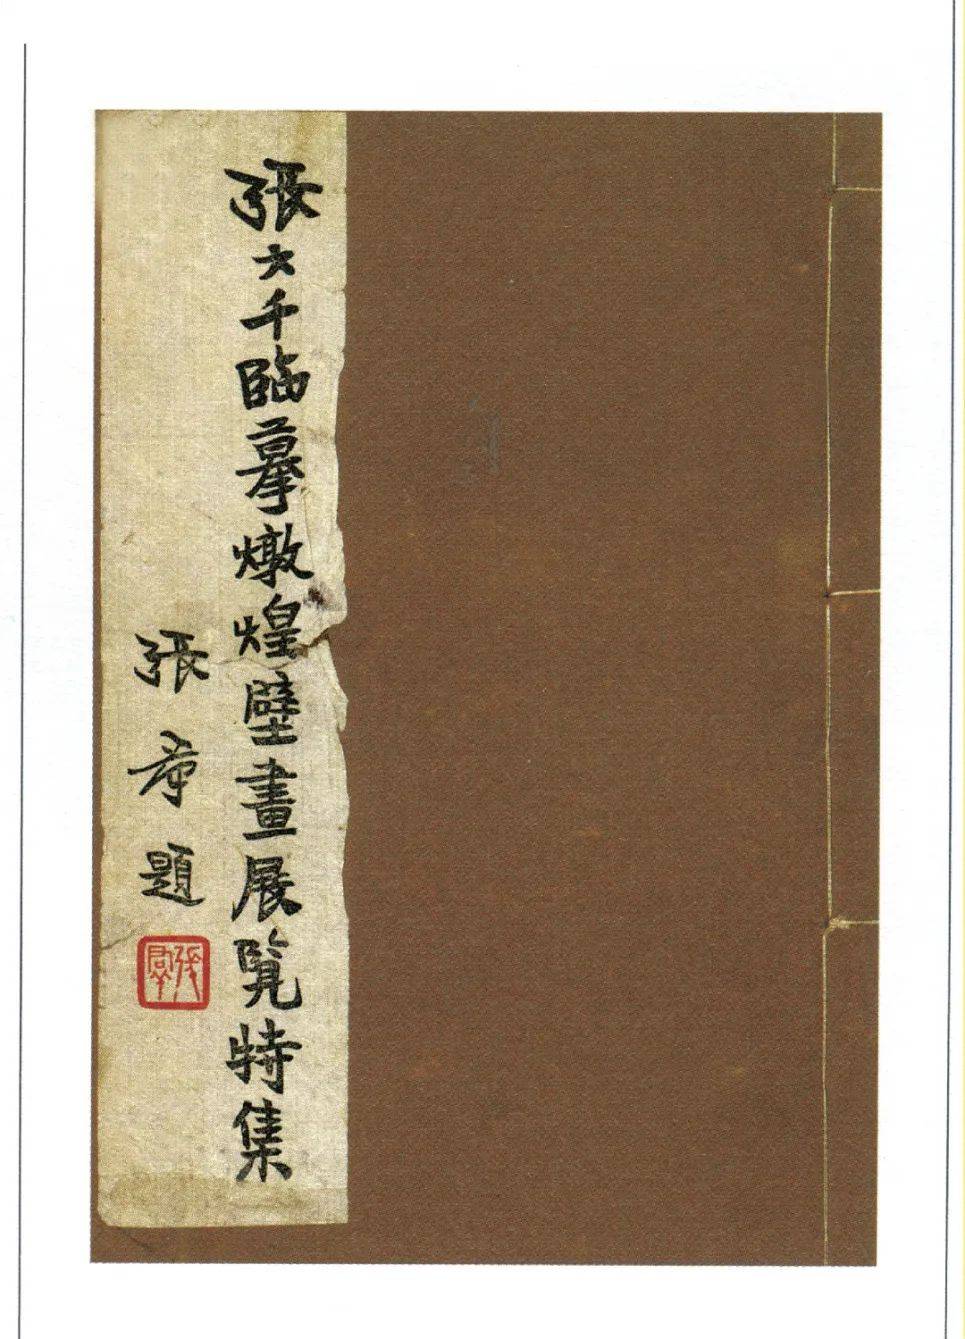 張大千臨摹燉煌壁畫展覽特集
張羣題
張羣